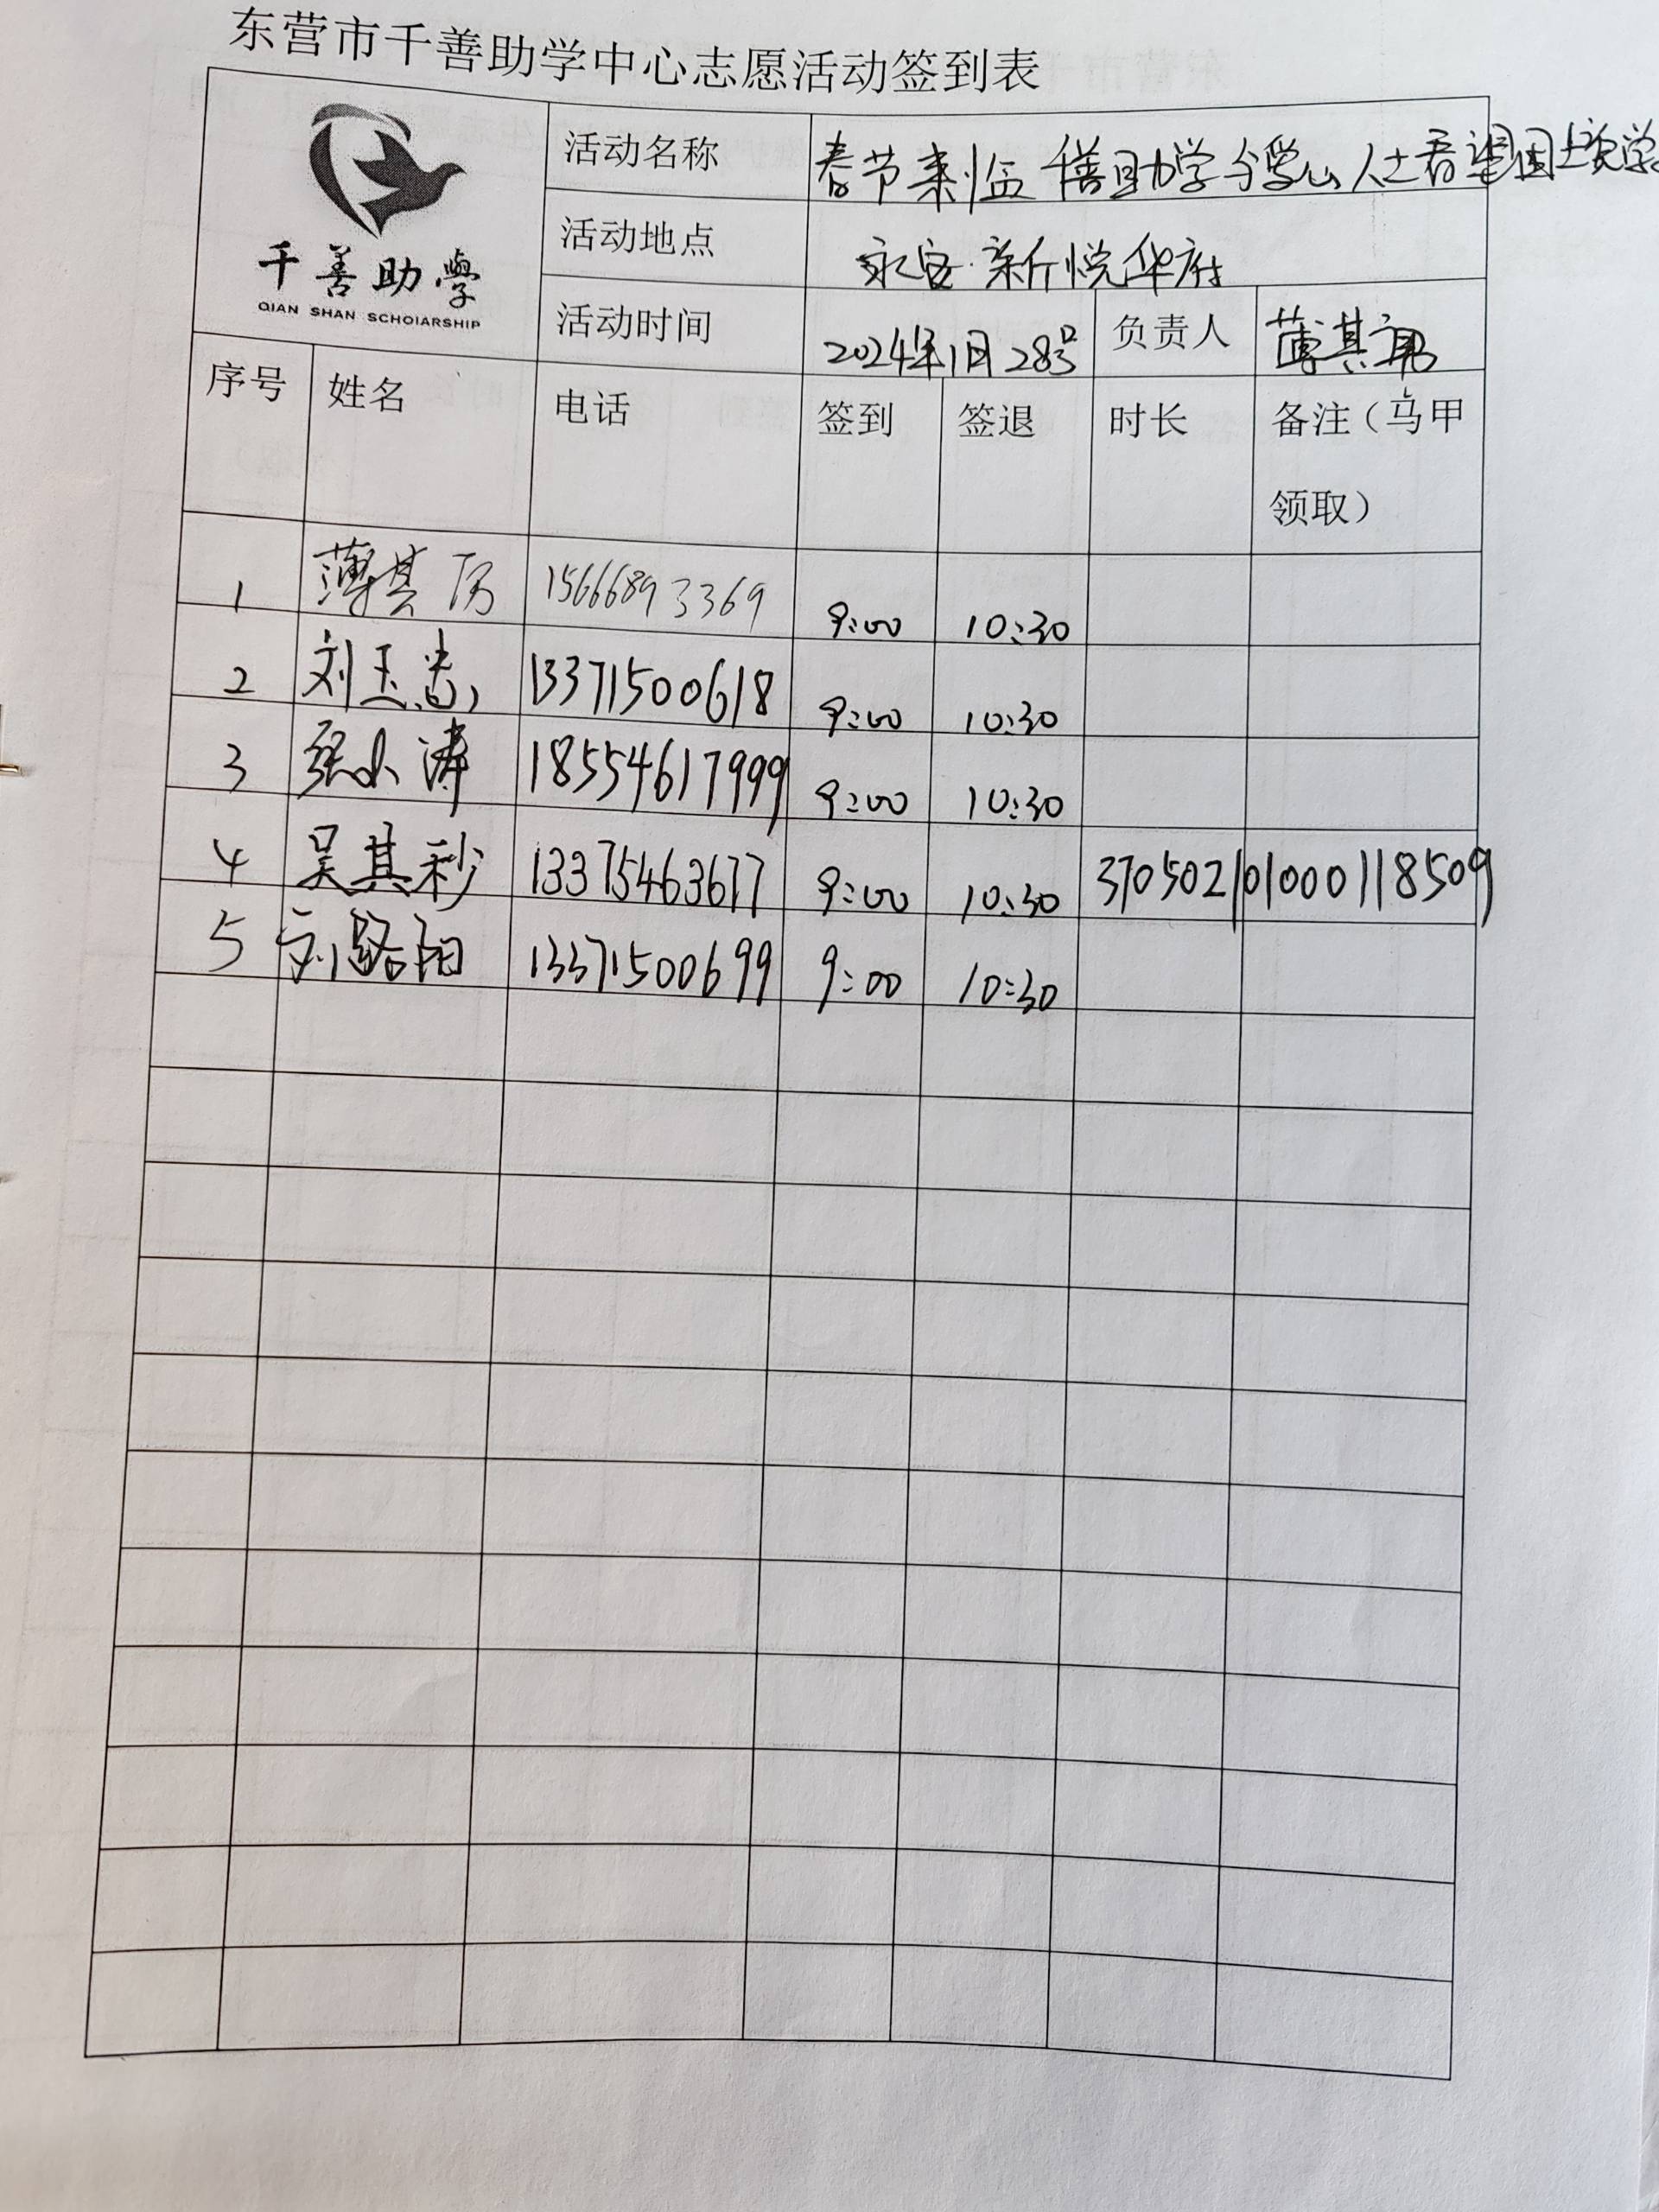 东营市千善助学中心志愿活动签到表
千善助學
QIAN SHAN SCHOIARSHIP
活动名称 春节来临 千善助学 人士看望困
活动地点 永安·新悦华府
活动时间 2024年1月28号 负责人 薄其
序号 姓名 电话 签到 签退 时长 备注（马甲
领取）
1 薄其 15666893369 9:00 10:30
2 刘玉 13371500618 9:00 10:30
3 张小涛 18554617999 9:00 10:30
4 吴其秒 13375463677 9:00 10:30 370502101000118509
5 刘路阳 13371500699 9:00 10:30